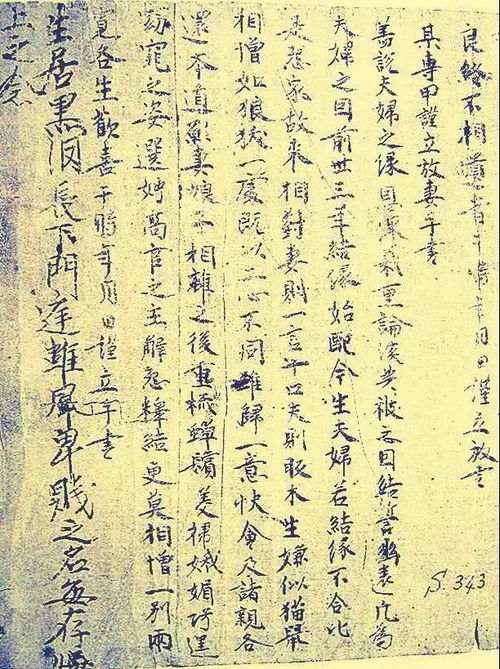 良緣不相者于時年月日謹立放書
某專甲謹立放妻手書
蓋說夫婦之緣恩深義重論談共被之因結誓幽遠凡為
夫婦之因前世三年結緣始配今生夫婦若結緣不合比
是怨家故來相對妻則一言十口夫則販木生嫌似猫鼠
相憎如狼犺一處既以二心不同難歸一意快會及諸親各
還本道願妻娘子相離之後重梳蟬鬢美掃娥媚巧逞
窈窕之姿選娉高官之主解怨釋結更莫相憎一別兩
寬各生歡喜于時年月日謹立手書
生居黑泪長下門庭雖屬卑賤之名每存
上之念
S.343